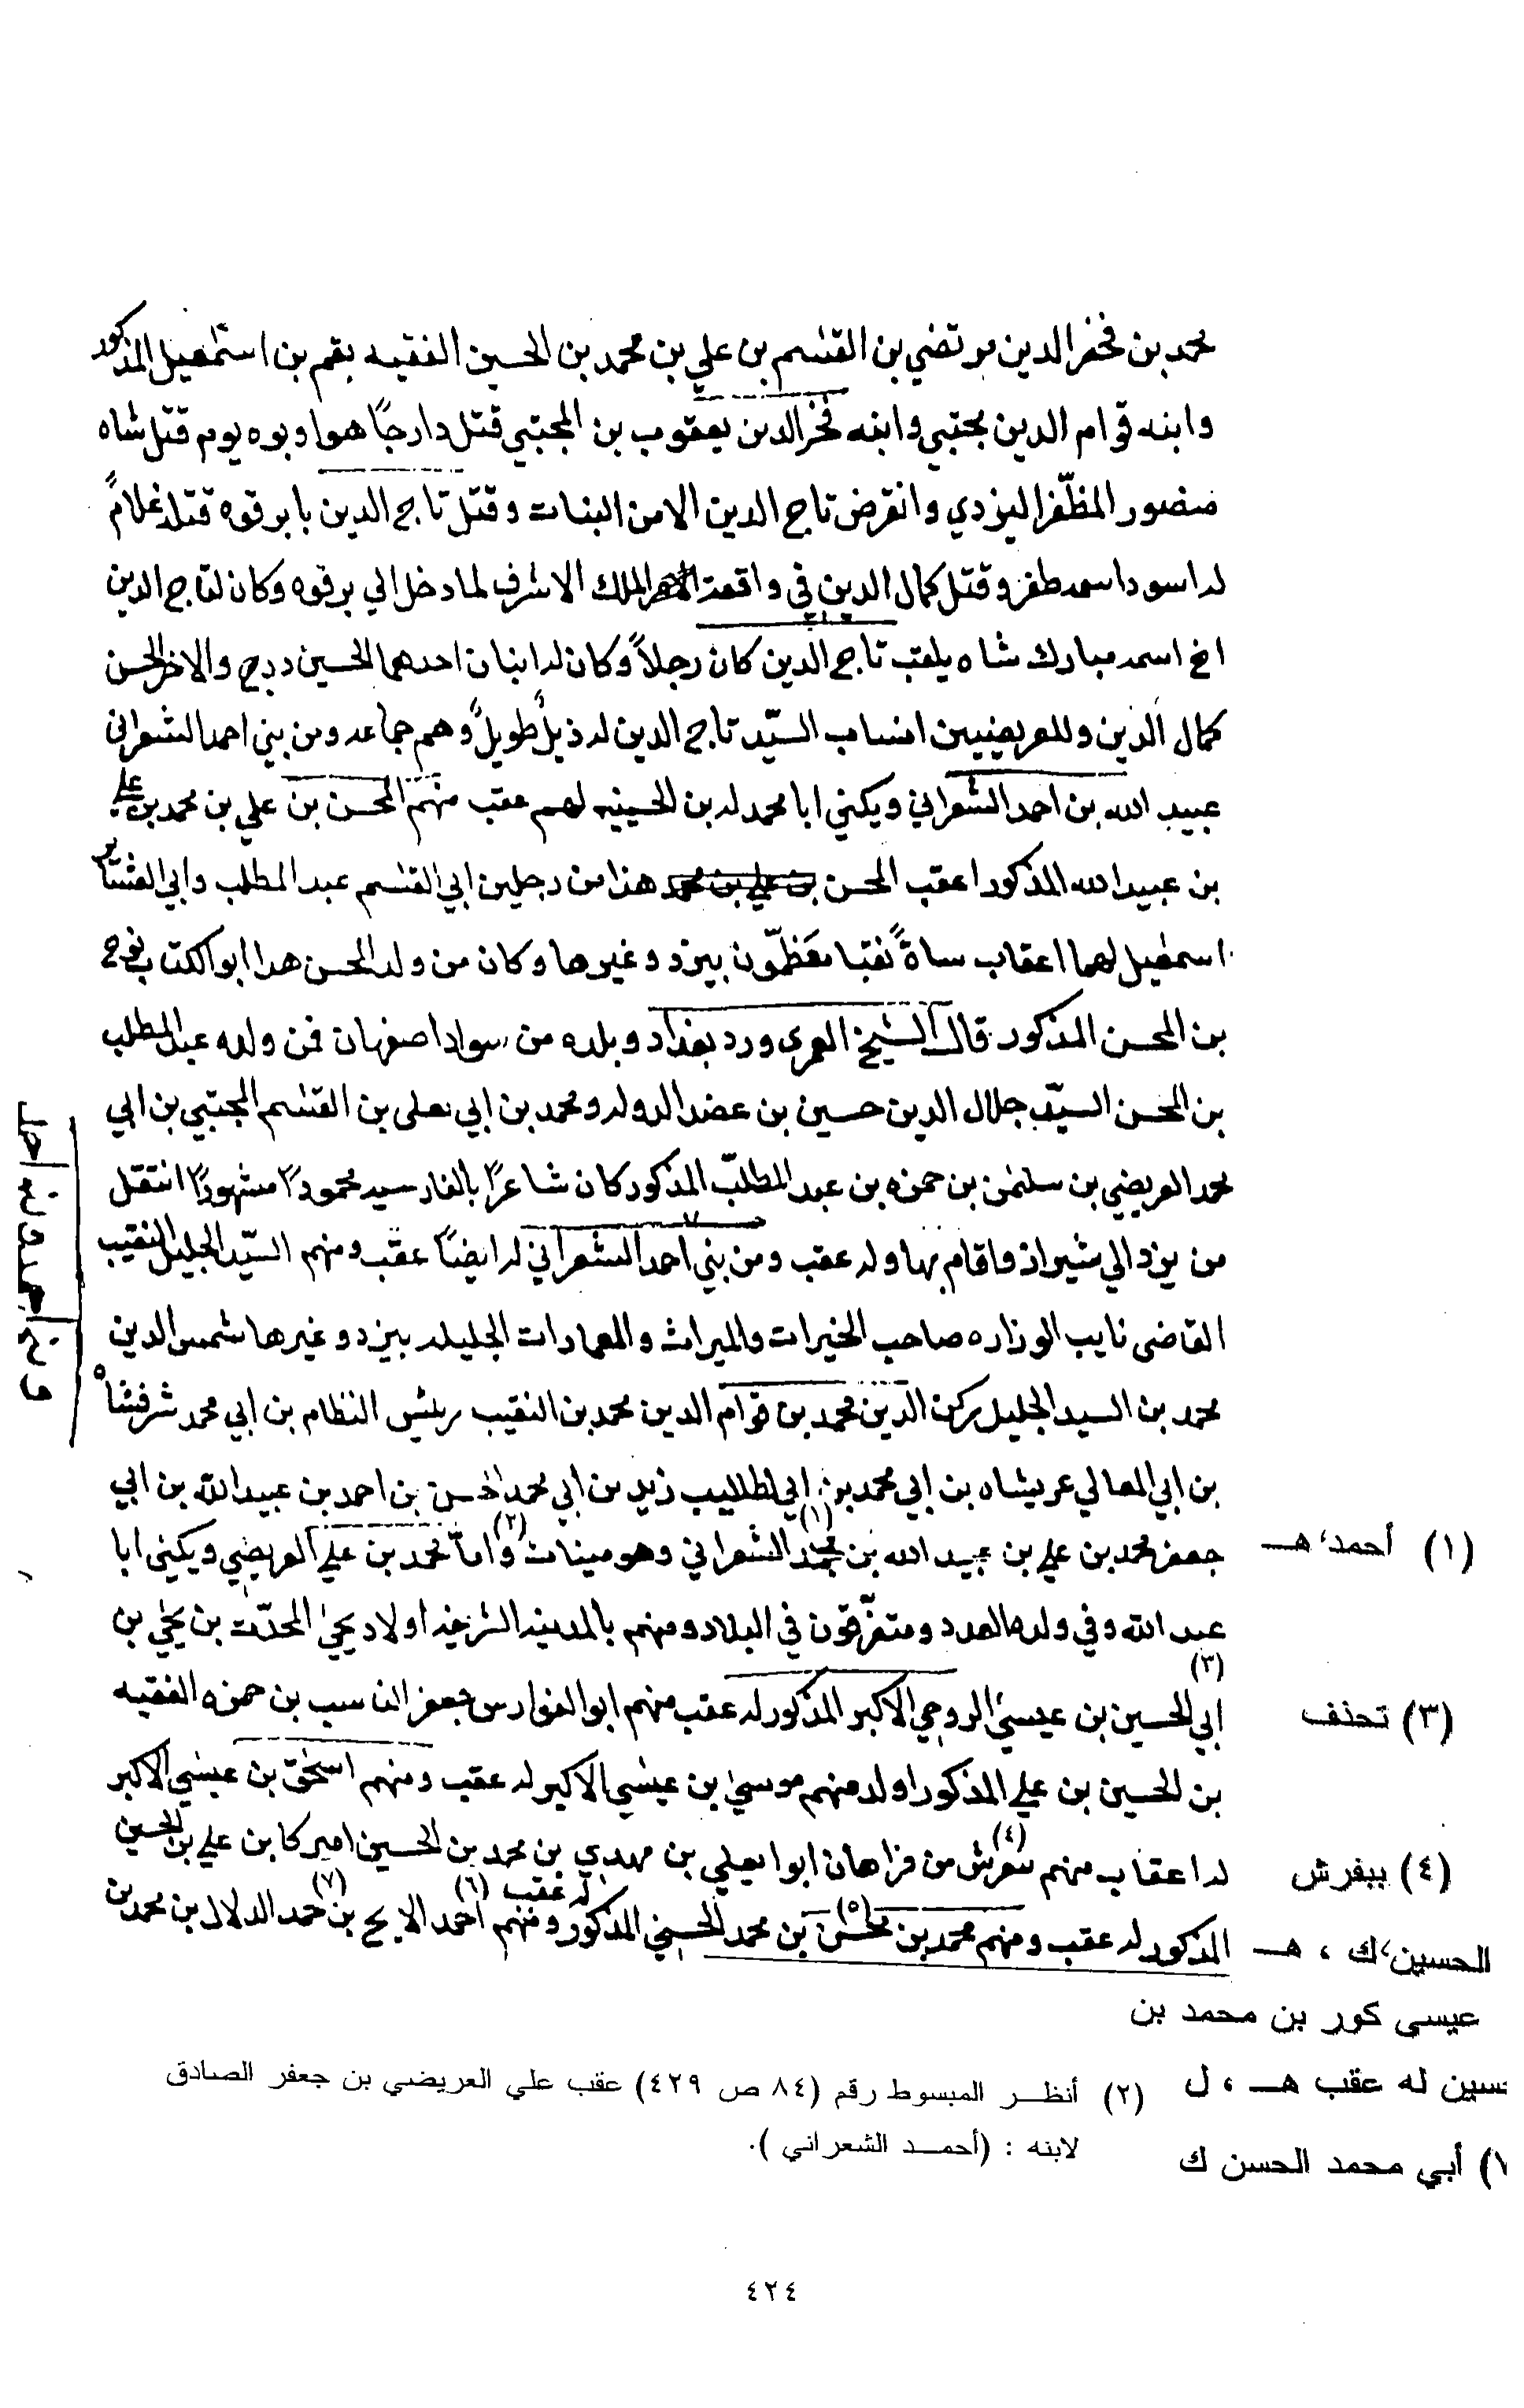 محمد بن فخر الدين مرتضي بن القسم بن علي بن محمد بن الحسين الفقيه بقم بن اسمعيل المذكور
وابنه قوام الدين مجتبي وابنه فخر الدين يعقوب بن المجتبي قتل دارجًا هو وابوه يوم قتل شاه
منصور المظفّر اليزدي وانقرض تاج الدين الا من البنات وقتل تاج الدين بابرقوه قتله غلامً
له اسود اسمه ظفر وقتل كمال الدين في واقعة الملك الاشرف لما دخل الي برقوه وكان لتاج الدين
اخ اسمه مبارك شاه يلقب تاج الدين كان رجلاً وكان له ابنان احدهما الحسين درج والاخر الحسن
كمال الدين وللعريضيين انساب السيّد تاج الدين له ذيلٌ طويلً وهم جماعه ومن بني احمد الشعراني
عبيد الله بن احمد الشعراني ويكني ابا محمد له بن الحسينيه لهم عقب منهم المحسن بن علي بن محمد بن علي
بن عبيد الله المذكور اعقب المحسن بن علي بن محمد هذا من رجلين ابي القسم عبد المطلب وابي العشاير
اسمعيل لهما اعقاب ساةً نقبا معَظمّون بيزد وغيرها وكان من ولد المحسن هذا ابو الكتايب نوح
بن المحسن المذكور قال الشيخ العمري ورد بغداد وبلده من سواد اصفهان فمن ولده عبد المطلب
بن المحسن السيّد جلال الدين حسين بن عضد الدوله ومحمد بن ابي يعلى بن القسم المجتبي بن ابي
محمد العريضي بن سليمن بن حمزه بن عبد المطلب المذكور كان شاعرًا بالفارسيه محمودًا مشهورًا انتقل
من يزد الي شيراز واقام بها وله عقب ومن بني احمد الشعراني له ايضًا عقب ومنهم السيّد الجليل النقيب
القاضى نايب الوزاره صاحب الخيرات والميراث والعمارات الجليله بيزد وغيرها شمس الدين
محمد بن السيد الجليل ركن الدين محمد بن قوام الدين محمد بن النقيب رئيس النظام بن ابي محمد شرفشاه
بن ابي المعالي عربشاه بن ابي محمد بن ابي الطيب زيد بن ابي محمد الحسن بن احمد بن عبيد الله بن ابي
جعفر محمد بن علي بن عبيد الله بن محمد (١) الشعراني وهو مينات (٢) وامّا محمد بن علي العريضي ويكنى ابا
(١) أحمد، هـ
عبد الله وفي ولده العدد ومتفرّقون في البلاد ومنهم بالمدينه الشريفه اولاد يحيٰ المحدّث بن يحيٰ بن
(٣) ابي الحسين بن عيسيٰ الرومي الاكبر المذكور له عقب منهم ابو الفوارس جعفر الناسب بن حمزه الفقيه
(٣) تحذف
بن الحسين بن علي المذكور اولد منهم موسيٰ بن عيسي الاكبر له عقب ومنهم اسحٰق بن عيسي الاكبر
له اعقاب منهم (٤) من فراهان ابو يعلي بن مهدي بن محمد بن الحسين اميركا بن علي بن الحسين
(٤) ببفرش
المذكور له عقب ومنهم محمد بن محسن (٥) بن محمد الحسيني المذكور له عقب (٦) ومنهم احمد الابح بن (٧) حمد الدلال بن محمد بن
الحسين، ك ، هـ
عيسى كور بن محمد بن
حسين له عقب هـ ، ل
(٢) أنظر المبسوط رقم (٨٤ ص ٤٢٩) عقب علي العريضي بن جعفر الصادق
لابنه : (أحمد الشعراني ).
٧) أبي محمد الحسن ك
٤٢٤